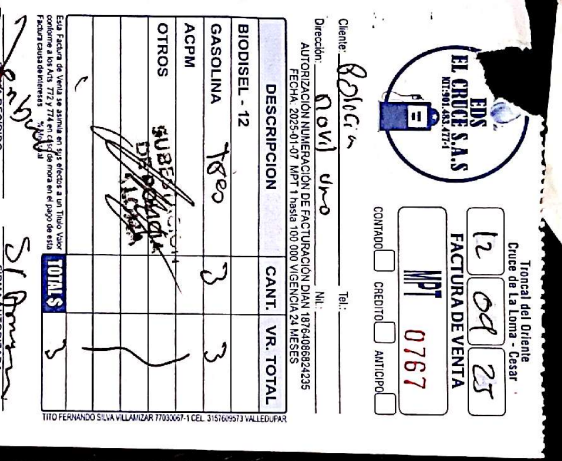 EDS
EL CRUCE S.A.S
NIT:901.485.477-1
Troncal del Oriente
Cruce de La Loma - Cesar
12 09 25
FACTURA DE VENTA
MPT 0767
CONTADO CREDITO ANTICIPO
Cliente: Policia Tel.:
Dirección: Movil uno Nit.:
AUTORIZACIÓN NUMERACIÓN DE FACTURACIÓN DIAN 18764086824235
FECHA: 2025-01-07 MPT 1 hasta 100.000 VIGENCIA 24 MESES
DESCRIPCION CANT. VR. TOTAL
BIODISEL - 12
GASOLINA 3 3
ACPM
OTROS
SUBESTACION
DE POLICIA
LA LOMA
TOTAL $ 3
Esta Factura de Venta se asimila en sus efectos a un Titulo Valor
conforme a los Arts. 772 y 774 en caso de mora en el pago de esta
Factura causa de intereses % Mensual
TITO FERNANDO SILVA VILLAMIZAR 77030067-1 CEL. 3157609573 VALLEDUPAR